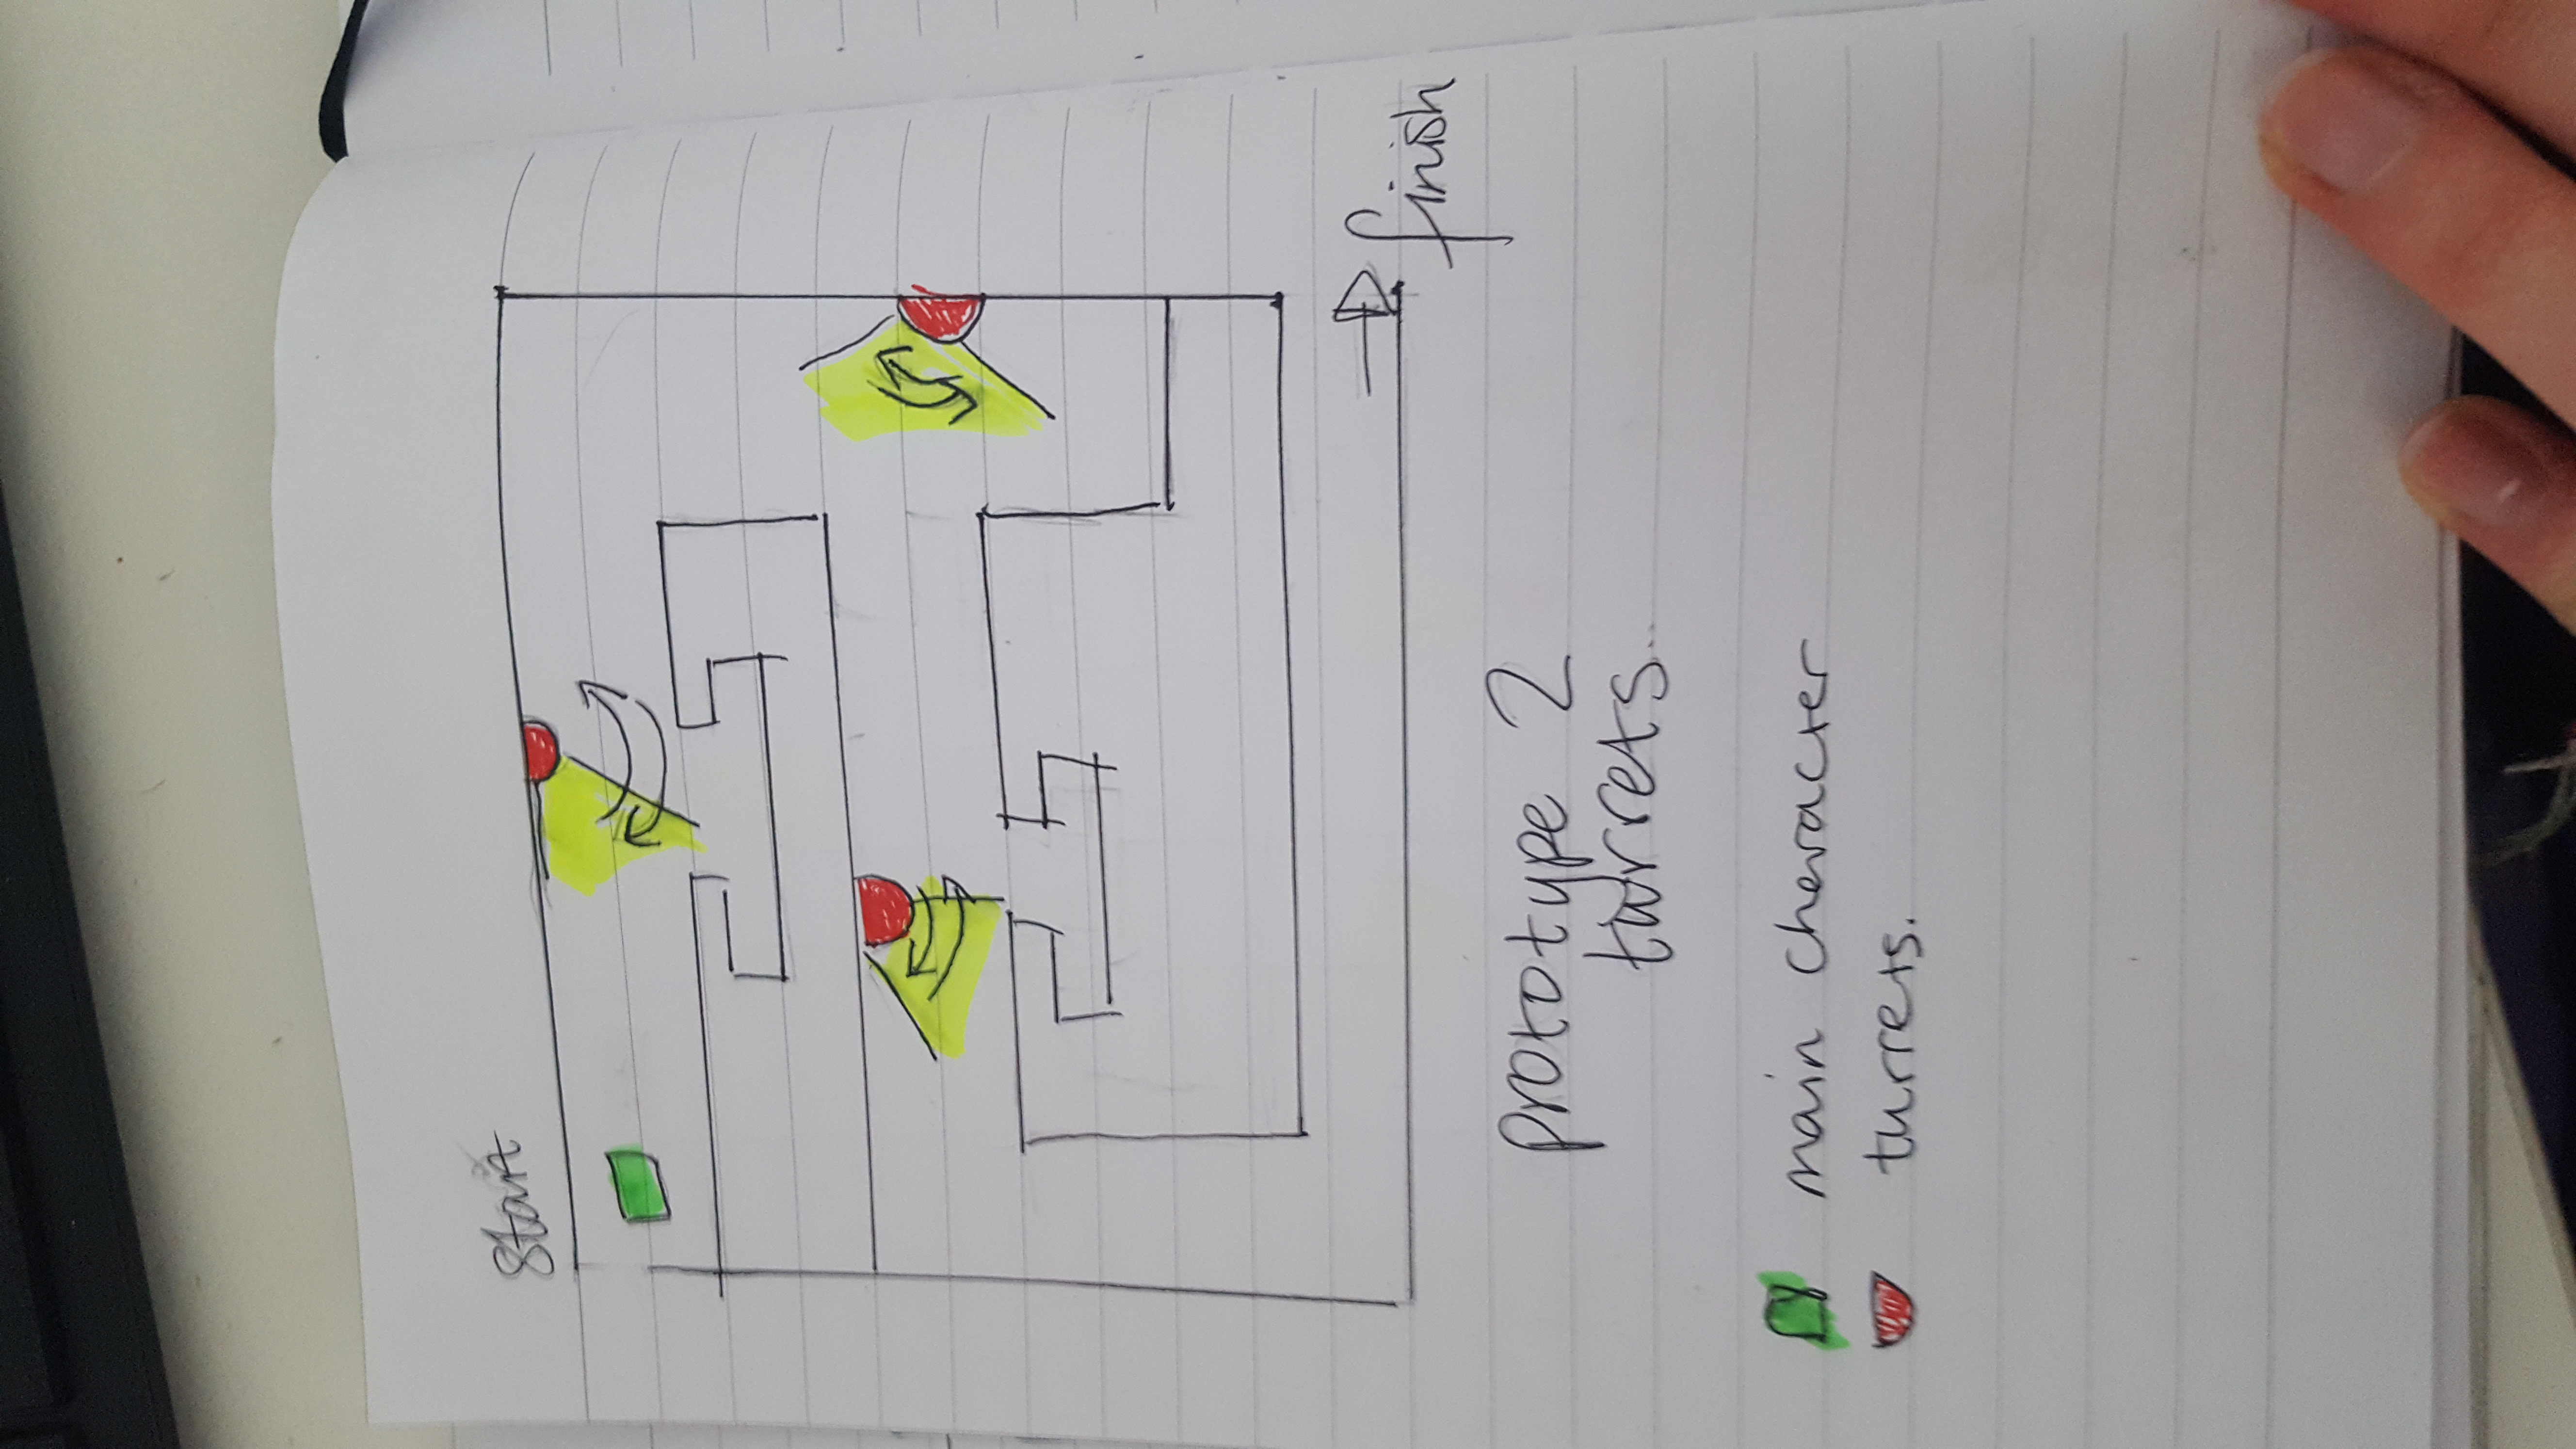 Start
finish
prototype 2
turrets..
main cheracter
turrets.